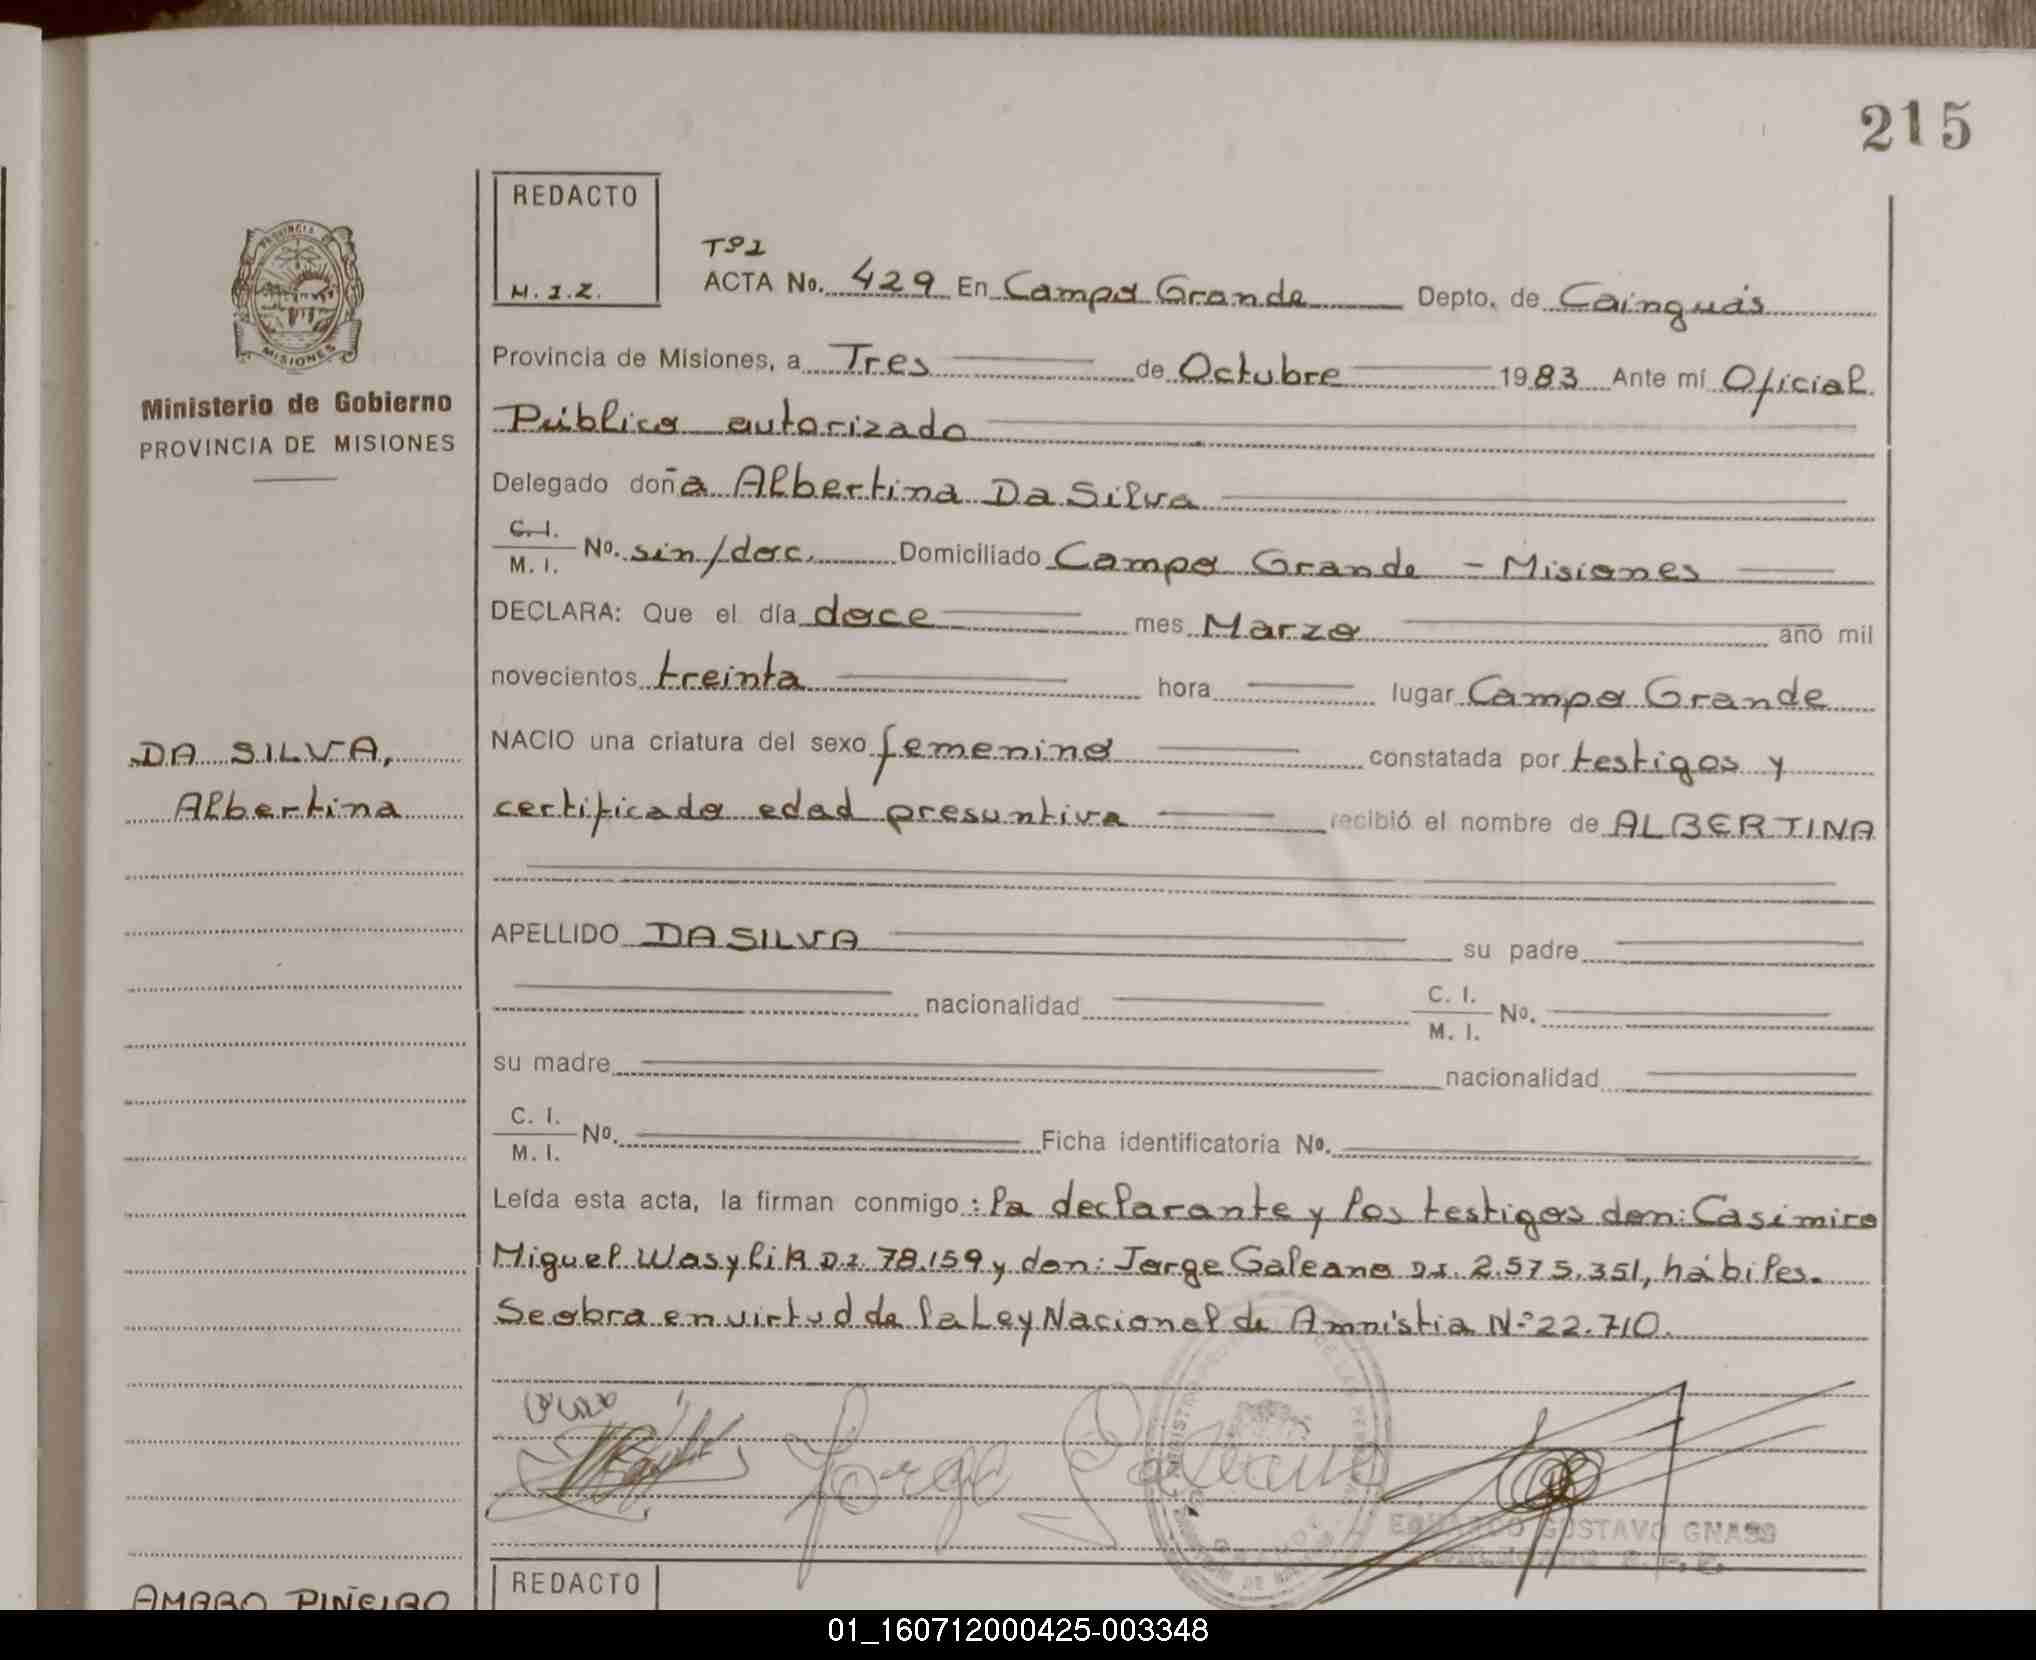 215
REDACTO
M. I. Z.
Tº1
ACTA No. 429 En Campo Grande Depto. de Cainguás
Provincia de Misiones, a Tres de Octubre 1983 Ante mí Oficial
Público autorizado
Delegado doña Albertina Da Silva
C. I.
M. I. No. sin/doc. Domiciliado Campo Grande - Misiones
DECLARA: Que el día doce mes Marzo año mil
novecientos treinta hora lugar Campo Grande
NACIO una criatura del sexo femenino constatada por testigos y
certificado edad presuntiva recibió el nombre de ALBERTINA
APELLIDO DA SILVA su padre
nacionalidad C. I. M. I. No.
su madre nacionalidad
C. I.
M. I. No. Ficha identificatoria No.
Leída esta acta, la firman conmigo: la declarante y los testigos don: Casimiro
Miguel Wasylik D.I. 78.159 y don: Jorge Galeano D.I. 2.575.351, hábiles.
Se obra en virtud de la Ley Nacional de Amnistia Nº 22.710.
Jorge Galeano
EDUARDO GUSTAVO GNASS
REDACTO
PROVINCIA DE
MISIONES
Ministerio de Gobierno
PROVINCIA DE MISIONES
DA SILVA,
Albertina
AMARO PIÑEIRO
01_160712000425-003348